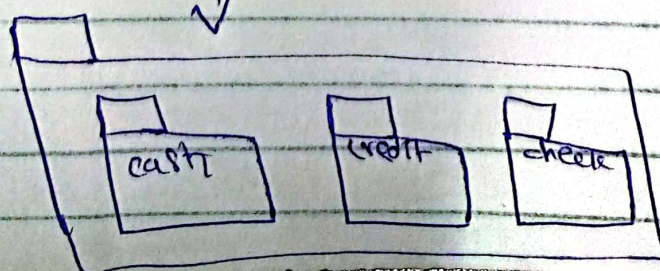 cash credit check